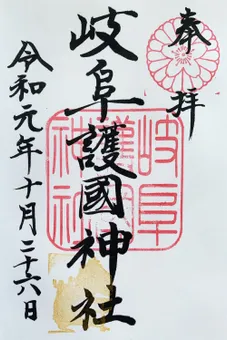 奉拝
岐阜護國神社
令和元年十月二十六日
岐阜
護國
神社